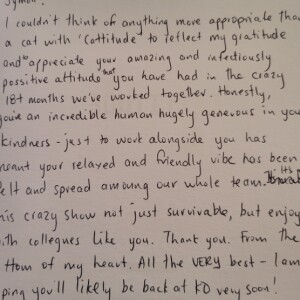 I couldn't think of anything more appropriate than
a cat with 'Cattitude' to reflect my gratitude
and to appreciate your amazing and infectiously
possitive attitude that you have in the crazy
18+ months we've worked together. Honestly,
you're an incredible human hugely generous in your
kindness - just to work alongside you has
meant your relaxed and friendly vibe has been
felt and spread amoung our whole team. It's
his crazy show not just survivable, but enjoy
ith collegues like you. Thank you. From the
ttom of my heart. All the VERY best - I am
ping you'll likely be back at KO very soon!